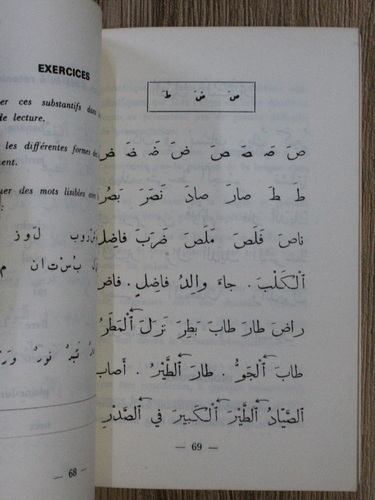 EXERCICES
er ces substantifs dans
de lecture.
les différentes formes des
ent.
uer des mots lisibles avec
لوز
بستان
— 68 —
صَ ضَ طَ
صَ صَ صَ صَ ضَ ضَ ضَ ضَ
طَ طَ صارَ صادَ نَصَرَ بَصُرَ
ناصَ قَلَصَ مَلَصَ ضَرَبَ فاضِل
اَلْكَلْبَ. جاءَ والِدُ فاضِلٍ. فاض
راضَ طارَ طابَ بَطِرَ نَزَلَ اَلْمَطَرُ
طابَ اَلْجَوُّ. طارَ اَلطَّيْرُ. أَصابَ
اَلصَّيّادُ اَلطَّيْرَ اَلْكَبيرَ في اَلصَّدْرِ.
— 69 —